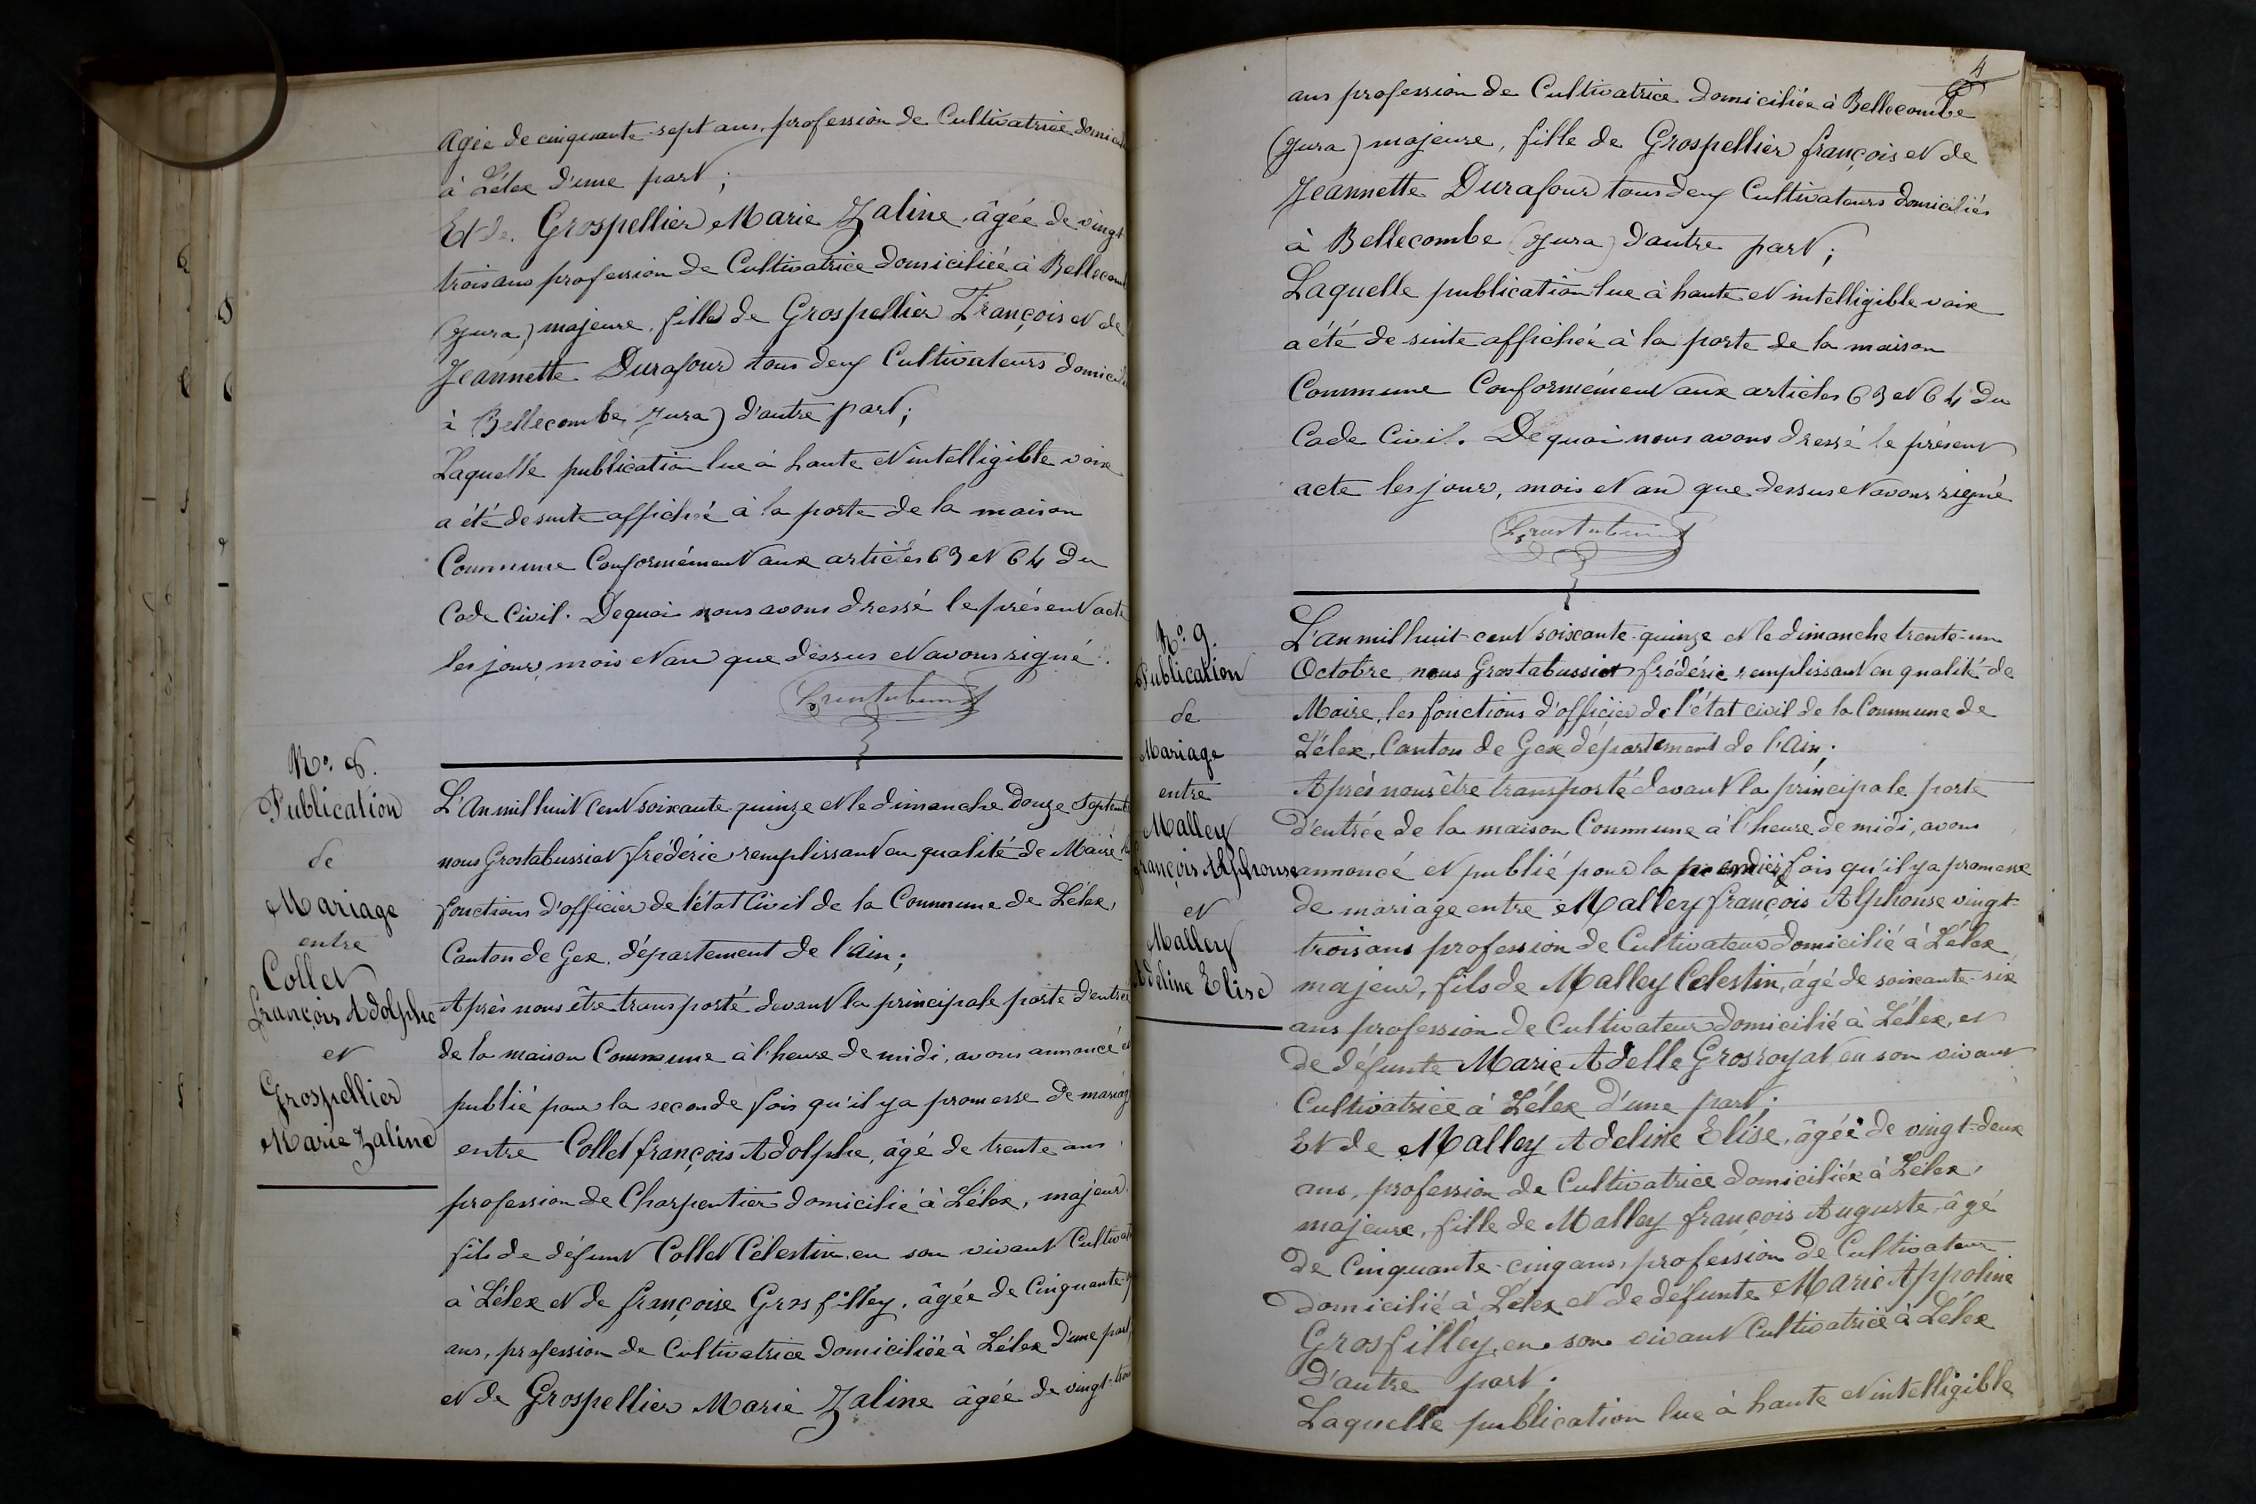 agée de cinquante-sept ans, profession de Cultivatrice domici
à Lélex d'une part;
Et de Grospellier Marie Zaline, âgée de vingt
trois ans profession de Cultivatrice domiciliée à Bellecom
(Jura) majeure, fille de Grospellier François et de
Jeannette Durafour tous deux Cultivateurs domicil
à Bellecombe Jura) d'autre part;
Laquelle publication lue à haute et intelligible voix
a été de suite affiché à la porte de la maison
Commune Conformément aux articles 63 et 64 du
Code Civil. De quoi nous avons dressé le présent acte
les jour, mois et an que dessus et avons signé.
N° 8.
Publication
de
Mariage
entre
Collet
françois Adolphe
et
Grospellier
Marie Zaline
L'An mil huit cent soixante-quinze et le dimanche Douze Septemb
nous Grostabussiat frédéric remplissant en qualité de Maire
fonctions d'officier de l'état Civil de la Commune de Lélex,
Canton de Gex, département de l'Ain;
Après nous être transporté devant la principale porte d'entrée
de la maison Commune à l'heure de midi, avons annoncé et
publié pour la seconde fois qu'il y a promesse de mariag
entre Collet françois Adolphe, âgé de trente ans
profession de Charpentier domicilié à Lélex, majeur,
fils de défunt Collet Célestin, en son vivant Cultivat
à Lélex et de françoise Grosfilley, âgée de Cinquante-
ans, profession de Cultivatrice domiciliée à Lélex d'une part
et de Grospellier Marie Zaline âgée de vingt-trois
4
ans profession de Cultivatrice domiciliée à Bellecombe
(Jura) majeure, fille de Grospellier françois et de
Jeannette Durafour tous deux Cultivateurs domiciliés
à Bellecombe (Jura) d'autre part;
Laquelle publication lue à haute et intelligible voix
a été de suite affichée à la porte de la maison
Commune Conformément aux articles 63 et 64 du
Code Civil. De quoi nous avons dressé le présent
acte les jour, mois et an que dessus et avons signé
N° 9.
Publication
de
Mariage
entre
Malley
françois Alphonse
et
Malley
Adeline Elise
L'an mil huit-cent soixante-quinze et le dimanche trente-un
Octobre, nous Grostabussiat frédéric remplissant en qualité de
Maire, les fonctions d'officier de l'état civil de la Commune de
Lélex, Canton de Gex département de l'Ain;
Après nous être transporté devant la principale porte
d'entrée de la maison Commune à l'heure de midi, avons
annoncé et publié pour la première fois qu'il y a promesse
de mariage entre Malley françois Alphonse vingt-
trois ans profession de Cultivateur domicilié à Lélex
majeur, fils de Malley Celestin, âgé de soixante-six
ans profession de Cultivateur domicilié à Lélex, et
de défunte Marie Adelle Grosroyat en son vivant
Cultivatrice à Lélex d'une part;
Et de Malley Adeline Elise, âgée de vingt-deux
ans, profession de Cultivatrice domiciliée à Lélex,
majeure, fille de Malley françois Auguste, âgé
de Cinquante-cinq ans, profession de Cultivateur
domicilié à Lélex et de défunte Marie Appoline
Grosfilley, en son vivant Cultivatrice à Lélex
D'autre part;
Laquelle publication lue à haute et intelligible